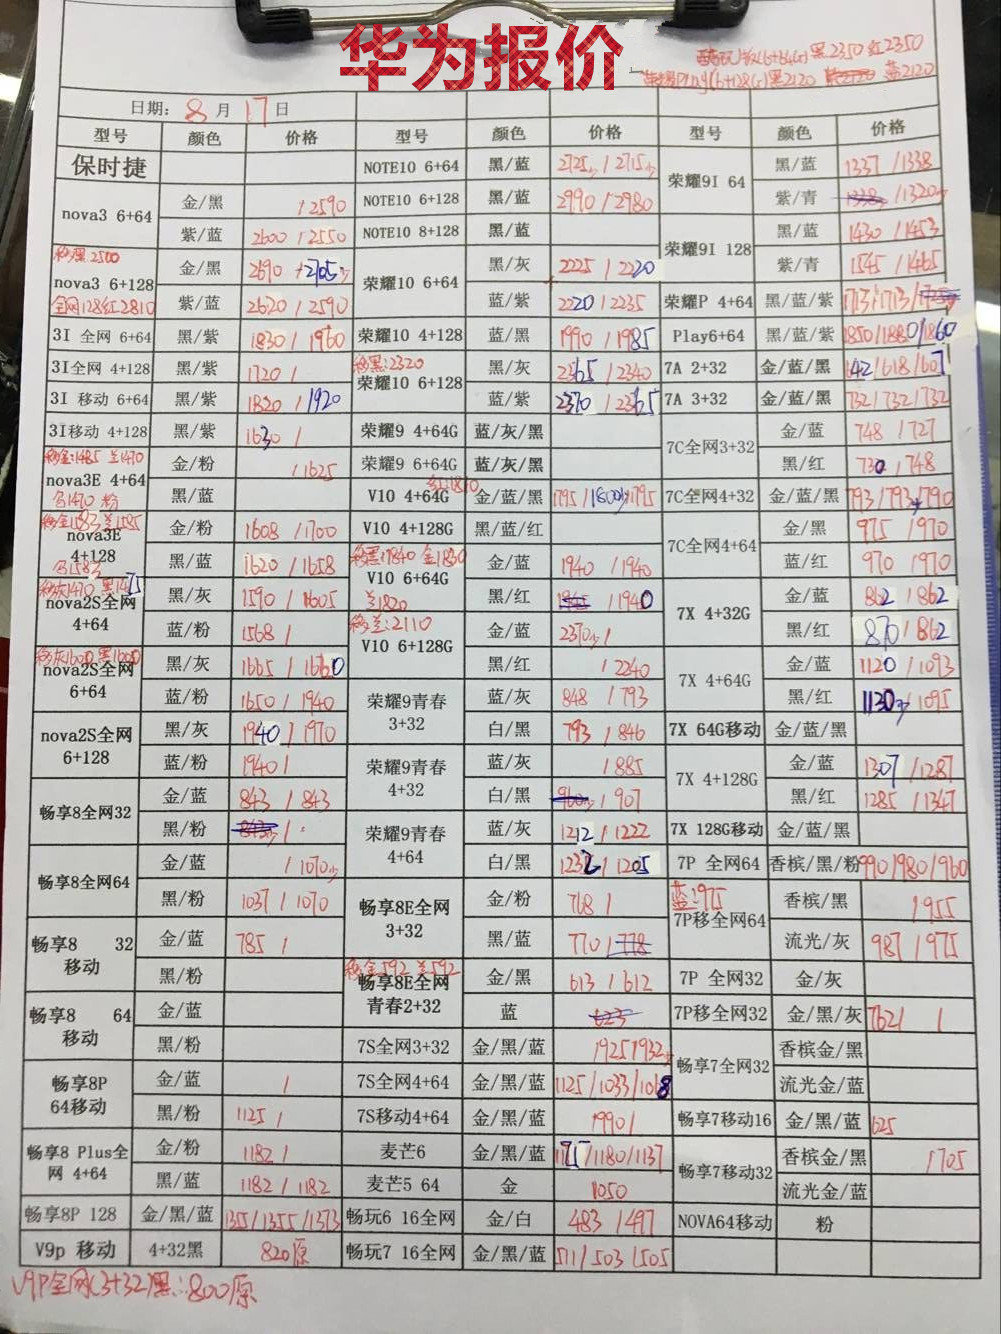 华为报价
黑2350 红2350
(6+128G)黑2120 蓝2120
日期: 8 月 17 日
型号 颜色 价格 型号 颜色 价格 型号 颜色 价格
保时捷 NOTE10 6+64 黑/蓝 2725 / 2715 荣耀9I 64 黑/蓝 1337 / 1338
nova3 6+64 金/黑 / 2590 NOTE10 6+128 黑/蓝 2990 / 2980 紫/青 / 1320
紫/蓝 2600 / 2550 NOTE10 8+128 黑/蓝 荣耀9I 128 黑/蓝 1430 / 1453
移黑2500
nova3 6+128 金/黑 2690 / 2705 荣耀10 6+64 黑/灰 2225 / 2220 紫/青 1545 / 1465
全网128红2810 紫/蓝 2620 / 2590 蓝/紫 2220 / 2235 荣耀P 4+64 黑/蓝/紫 1713 / 1713 /
3I 全网 6+64 黑/紫 1830 / 1960 荣耀10 4+128 蓝/黑 1990 / 1985 Play6+64 黑/蓝/紫 1850/1880/1860
移黑:2320
3I全网 4+128 黑/紫 1720 / 荣耀10 6+128 黑/灰 2365 / 2340 7A 2+32 金/蓝/黑 /618/607
3I 移动 6+64 黑/紫 1820 / 1920 蓝/紫 2370 / 2365 7A 3+32 金/蓝/黑 732/732/732
3I移动 4+128 黑/紫 1630 / 荣耀9 4+64G 蓝/灰/黑 7C全网3+32 金/蓝 748 / 727
移金:1485 兰1470
nova3E 4+64 金/粉 / 1625 荣耀9 6+64G 蓝/灰/黑 黑/红 730 / 748
1470 粉 黑/蓝 V10 4+64G 金/蓝/黑 1795 / 1800 / 1795 7C全网4+32 金/蓝/黑 793/793/790
移金1583 兰1585
nova3E 4+128 金/粉 1608 / 1700 V10 4+128G 黑/蓝/红 7C全网4+64 金/黑 975 / 970
1583 黑/蓝 1620 / 1658 移黑:1840 金1830 V10 6+64G 兰1820 金/蓝 1940 / 1940 蓝/红 970 / 970
移灰1470 黑1475
nova2S全网 4+64 黑/灰 1590 / 1605 黑/红 / 1940 7X 4+32G 金/蓝 862 / 862
蓝/粉 1568 / 移兰:2110 V10 6+128G 金/蓝 2370 / 黑/红 870 / 862
移灰1600 黑1600
nova2S全网 6+64 黑/灰 1665 / 1660 黑/红 / 2240 7X 4+64G 金/蓝 1120 / 1093
蓝/粉 1650 / 1940 荣耀9青春 3+32 蓝/灰 848 / 793 黑/红 1130 / 1095
nova2S全网 6+128 黑/灰 1940 / 1970 白/黑 793 / 846 7X 64G移动 金/蓝/黑
蓝/粉 1940 / 荣耀9青春 4+32 蓝/灰 / 885 7X 4+128G 金/蓝 1307 / 1287
畅享8全网32 金/蓝 843 / 843 白/黑 / 907 黑/红 1285 / 1347
黑/粉 / 荣耀9青春 4+64 蓝/灰 1212 / 1222 7X 128G移动 金/蓝/黑
畅享8全网64 金/蓝 / 1070 白/黑 1232 / 1205 7P 全网64 香槟/黑/粉 990/980/960
黑/粉 1037 / 1070 畅享8E全网 3+32 金/粉 768 / 蓝:975 7P移全网64 香槟/黑 / 955
畅享8 32 移动 金/蓝 785 / 黑/蓝 770 / 流光/灰 987 / 975
移金592 兰592
黑/粉 畅享8E全网 青春2+32 金/黑 613 / 612 7P 全网32 金/灰
畅享8 64 移动 金/蓝 蓝 7P移全网32 金/黑/灰 762/ /
黑/粉 7S全网3+32 金/黑/蓝 /925/932 畅享7全网32 香槟金/黑
畅享8P 64移动 金/蓝 / 7S全网4+64 金/黑/蓝 1125/1033/1068 流光金/蓝
黑/粉 1125 / 7S移动4+64 金/黑/蓝 /990/ 畅享7移动16 金/黑/蓝 625
畅享8 Plus全网 4+64 金/粉 1182 / 麦芒6 金/黑/蓝 /1180/1137 畅享7移动32 香槟金/黑 /705
黑/蓝 1182 / 1182 麦芒5 64 金 1050 流光金/蓝
畅享8P 128 金/黑/蓝 1355/1355/1373 畅玩6 16全网 金/白 483 / 497 NOVA64移动 粉
V9p 移动 4+32黑 820原 畅玩7 16全网 金/黑/蓝 511/503/505
V9P全网(3+32)黑:800原